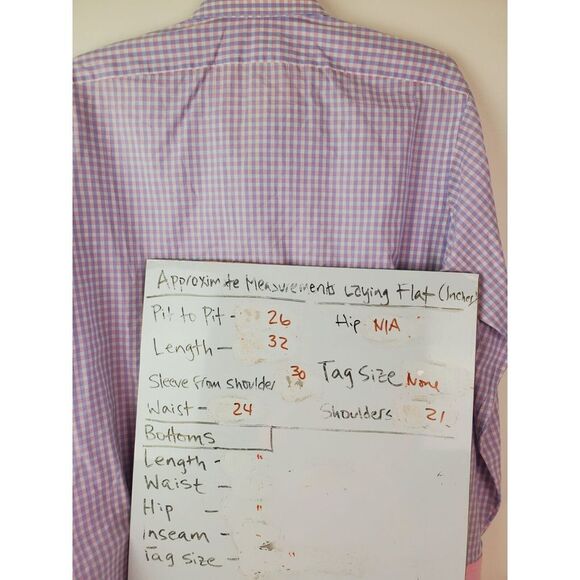 Approximate Measurements Laying Flat (Inches)
Pit to Pit - 26
Hip N/A
Length - 32
Sleeve from shoulder 30
Tag Size None
Waist - 24
Shoulders 21
Bottoms
Length - "
Waist - "
Hip - "
inseam - "
Tag size - "